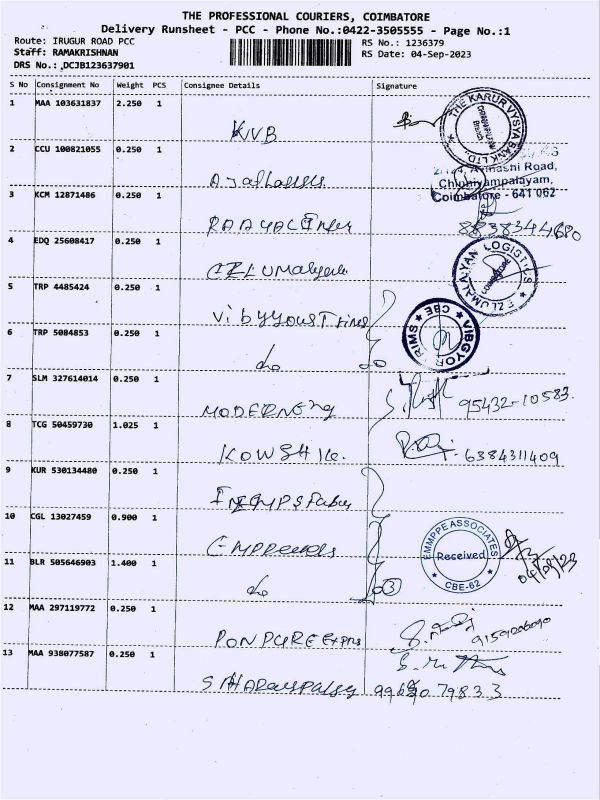 THE PROFESSIONAL COURIERS, COIMBATORE
Delivery Runsheet - PCC - Phone No.:0422-3505555 - Page No.:1
Route: IRUGUR ROAD PCC
RS No.: 1236379
Staff: RAMAKRISHNAN
RS Date: 04-Sep-2023
DRS No.: DCJB123637901
S No Consignment No Weight PCS Consignee Details Signature
1 MAA 103631837 2.250 1
KVB
THE KARUR VYSYA BANK LTD.,
2 CCU 100821055 0.250 1
Avinashi Road,
Chinniyampalayam,
Coimbatore - 641 062
3 KCM 12871486 0.250 1
4 EDQ 25608417 0.250 1
EZLUMALAIYAN LOGISTICS
5 TRP 4485424 0.250 1
VIBGYOR TRIMS CBE
6 TRP 5084853 0.250 1
do
7 SLM 327614014 0.250 1
MODERN Eng 95432-10583
8 TCG 50459730 1.025 1
KOWSHIK. 6384311409
9 KUR 530134480 0.250 1
10 CGL 13027459 0.900 1
EMMPPE ASSOCIATES
Received
CBE-62
11 BLR 505646903 1.400 1
do 3 04/09/23
12 MAA 297119772 0.250 1
PON PURE 9159206090
13 MAA 938077587 0.250 1